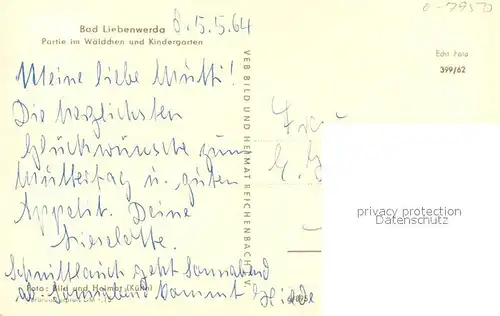 Bad Liebenwerda d. 5.5.64
Partie im Wäldchen und Kindergarten
0-7950
Echt Foto
399/62
Meine liebe Mutti!
Die herzlichsten
Glückwünsche zum
Muttertag u. guten
Appetit. Deine
Lieselotte.
Schnittlauch geht Sonnabend
ab. Sonnabend kommt
Foto: Bild und Heimat (Kühn)
VEB BILD UND HEIMAT REICHENBACH I. V.
Frau
privacy protection
www.AnsichtskartenVersand.com